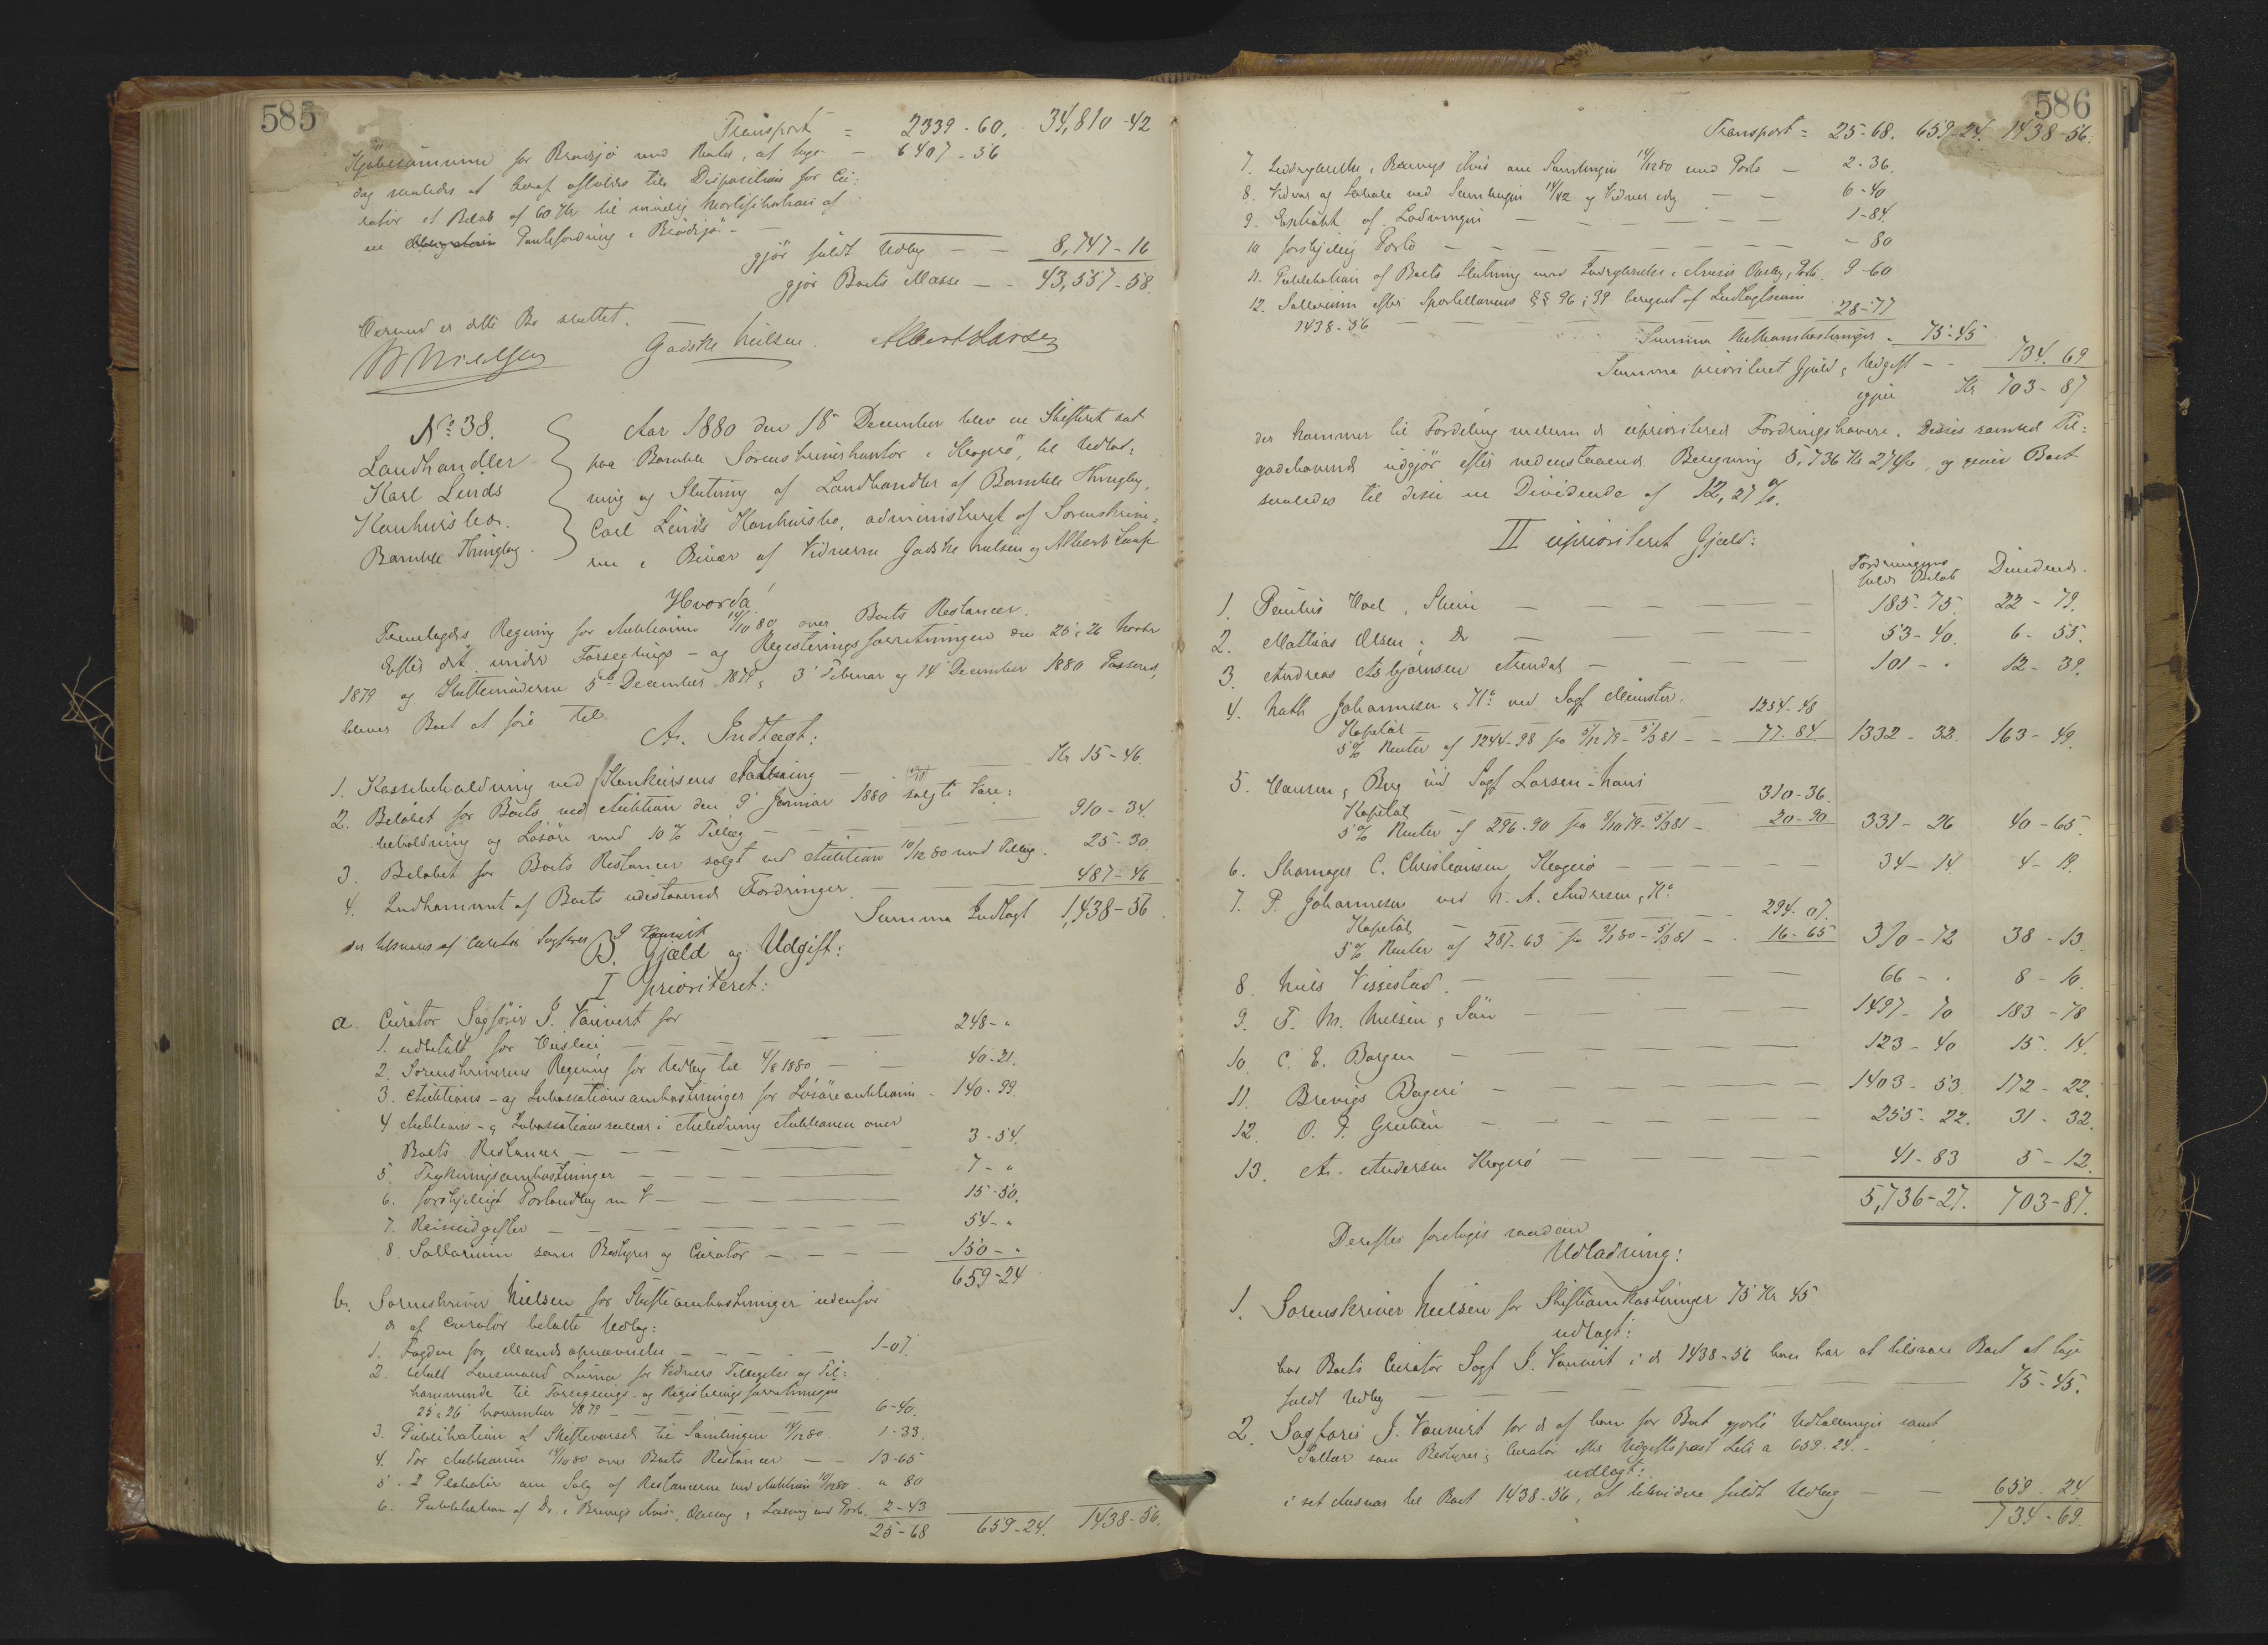 585
Transport = 2339-60. 34,810-42
Kjøbesummen for Brødsjø med Renter, at tage — 6407-56
dog saaledes at heraf afholdes til Disposition for Cu=
rator et Beløb af 60 Kr til mulig Mortifikation af
en Obligation Pantefordring i Brødsjø —
gjør fuldt Udlæg — — 8,747-16
gjør Boets Masse — - 43,557-58.
Hermed er dette Bo sluttet.
Nielsen Gadske Nielsen. Albert Larsen
No 38.
Landhandler
Karl Linds
Konkursbo.
Bamble Thinglag.
Aar 1880 den 18 December blev en Skifteret sat
paa Bamble Sorenskriverkontor i Kragerø, til Udlod=
ning og Slutning af Landhandler af Bamble Thinglag,
Carl Linds Konkursbo, administreret af Sorenskrive=
ren i Bivær af Vidnerne Gadske Nielsen og Albert Lars
Hvorda!
Fremlagdes Regning for Auktionen 14/10 80 over Boets Restancer.
Efter det under Forseglings- og Registreringsforretningen den 25 & 26 Novbr
1879 og Skiftemøderne 5te December 1879, 3 Februar og 14 December 1880 Passerede,
bliver Boet at føre til
A. Indtægt:
1. Kassebeholdning ved Konkursens Aabning — — Kr 15-46.
2. Beløbet for Boets ved Auktion den 9 Januar 1880 solgte Vare=
beholdning og Løsøre med 10% Tillæg — — — 910-34.
3. Beløbet for Boets Restancer solgt ved Auktion 10/12 80 med Tillæg. 25-30.
4. Indkommet af Boets udestaaende Fordringer — — 487-46
Summa Indtægt 1,438-56.
der tilsvares af Curator Sagfører J Vauvert
B. Gjæld og Udgift:
I prioriteret:
a. Curator Sagfører J. Vauvert for
1. udbetalt for Husleie — — — 248-"
2. Sorenskriverens Regning for Udlæg til 4/8 1880 — — 40-21.
3. Auktions- og Inkassationsomkostninger for Løsøreauktionen - 140-99.
4 Auktions- & Inkassationssalær i Anledning Auktionen over
Boets Restancer — — — 3-54.
5. Trykningsomkostninger — — — 7-"
6. forskjelligt Portoudlæg m V — — — 15-50.
7. Reiseudgifter — — — 54-"
8. Sallarium som Bestyrer og Curator — — — 150-"
659-24
b. Sorenskriver Nielsen for Skifteomkostninger udenfor
de af Curator betalte Udlæg:
1. Fogden for Mænds opnævnelse — — — 1-07.
2. betalt Lensmand for Vidners Tilsigelse og Til=
kommende til Forseglings- og Registreringsforretningen
25 & 26 November 1879 — — — 6-40.
3. Publikation af Skiftevarsel til Samlingen 14/12 80. 1-33.
4. For Auktionen 14/10 80 over Boets Restancer — — 13-65
5. 2 Plakater om Salg af Restancerne ved Auktion 10/12 80 " 80
6. Publikation af Do i Brevigs Avis, Oplæsn & Læsning med Porto 2-43
25-68 659-24. 1438-56.
586
Transport = 25-68. 659-24. 1438-56.
7. Indrykkelse i Brevigs Avis om Samlingen 14/12 80 med Porto — 2-36.
8. Vidner og Lokale ved Samlingen 14/12 og Vidner idag — — 6-40
9. Extrakt af Lodningen — — — 1-84.
10 forskjellig Porto — — — - 80
11. Publikation af Boets Slutning med Indrykkelse i Avisen Oplæs, Porto. 9-60
12. Sallarium efter Sportellovens §§ 96 & 99 beregnet af Indtægtssum
1438-56 — — — 28-77
Summa Skifteomkostninger = 75-45
Summa prioriteret Gjæld & Udgift — - 734.69
igjen Kr 703-87
der kommer til Fordeling mellem de uprioriterede Fordringshavere. Disses samlede Til=
godehavende udgjør efter nedenstaaende Beregning 5,736 Kr 27 Øre, og giver Boet
saaledes til disse en Dividende af 12,27%.
II uprioriteret Gjæld:
Fordringens
fulde Beløb Dividende.
1. Paulus Hoel, Skien — — — 185-75. 22-79.
2. Mathias Olsen, Do — — — 53-40. 6-55.
3. Andreas Asbjørnsen Arendal — — — 101-" 12-39.
4. Nath Johannesen & Ko ved Sagf Münster.
Kapital — — 1254-48
5% Renter af 1244-98 fra 5/12 79 - 5/3 81 — - 77-84. 1332-32. 163-49.
5. Hansen & Berg ved Sagf Larsen-Naur
Kapital — — 310-36.
5% Renter af 296-90 fra 9/10 79 - 5/3 81 — 20-90 331-26 40-65.
6. Skomager C. Christiansen Kragerø — — — 34-14 4-19.
7. P. Johannesen ved N. A. Andresen & Ko
Kapital — — 294-07.
5% Renter af 287-63 fra 2/1 80 - 5/3 81 — - 16-65 310-72 38-13.
8. Niels Vissestad — — — 66-" 8-10.
9. T. M. Nielsen & Søn — — — 1497-70 183-78
10. C. E. Borgen — — — 123-40 15-14.
11. Brevigs Bageri — — — 1403-53. 172-22.
12. O. J. Gruben — — — 255-22. 31-32.
13. A. Andersen Kragerø — — — 41-83 5-12.
5,736-27. 703-87.
Derefter foretoges saadan
Udlodning:
1. Sorenskriver Nielsen for Skifteomkostninger 75 Kr 45
udlagt:
hos Boets Curator Sagf J. Vauvert i de 1438-56 han har at tilsvare Boet at tage
fuldt Udlæg — — — 75-45.
2. Sagfører J. Vauvert for de af ham for Boet gjorte Udtællinger samt
Sallær som Bestyrer & Curator efter Udgiftspost Litr a 659-24. -
udlagt:
i sit Ansvar til Boet 1438-56, at likvidere fuldt Udlæg — — 659-24
734-69.